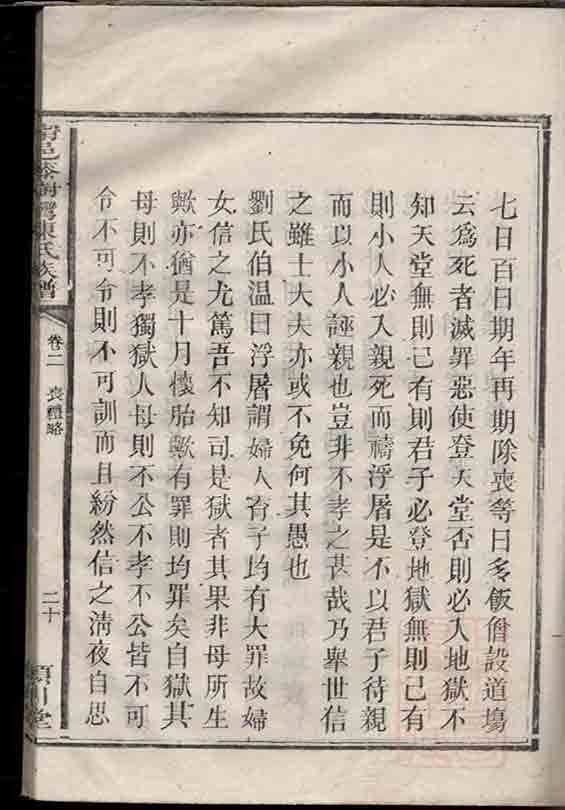 七日百日期年再期除喪等日多飯僧設道塲
云爲死者滅罪惡使登天堂否則必入地獄不
知天堂無則已有則君子必登地獄無則已有
則小人必入親死而禱浮屠是不以君子待親
而以小人誣親也豈非不孝之甚哉乃舉世信
之雖士大夫亦或不免何其愚也
劉氏伯温曰浮屠謂婦人育子均有大罪故婦
女信之尤篤吾不知司是獄者其果非母所生
歟亦猶是十月懷胎歟有罪則均罪矣自獄其
母則不孝獨獄人母則不公不孝不公皆不可
令不可令則不可訓而且紛然信之淸夜自思
邑 陳氏族譜
卷二 喪禮略
二十
潁川堂